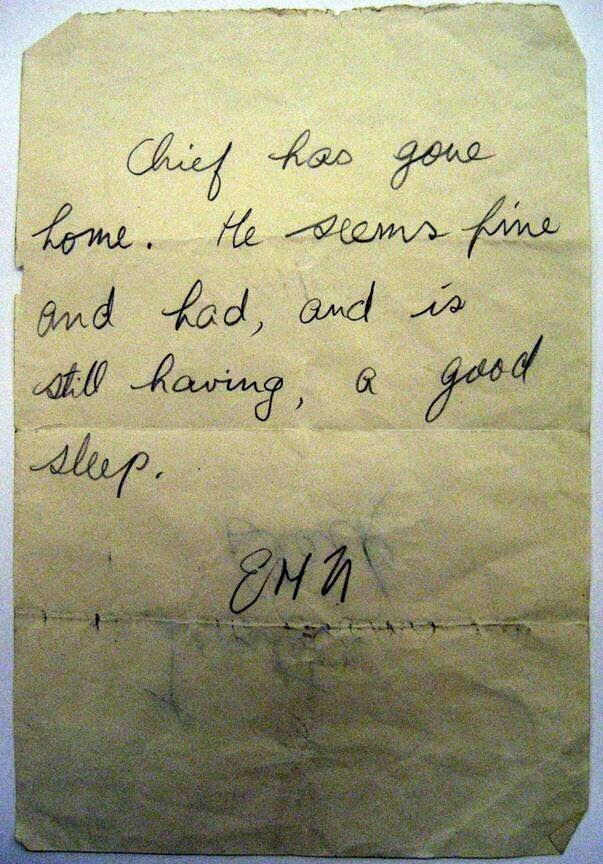 Chief has gone
home. He seems fine
and had, and is
still having, a good
sleep.
EMN